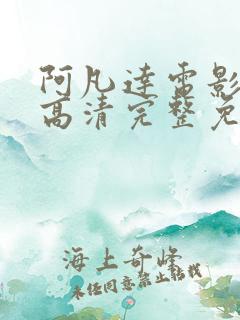 阿凡達電影
高清完整免
海上奇峰
未经同意禁止转载